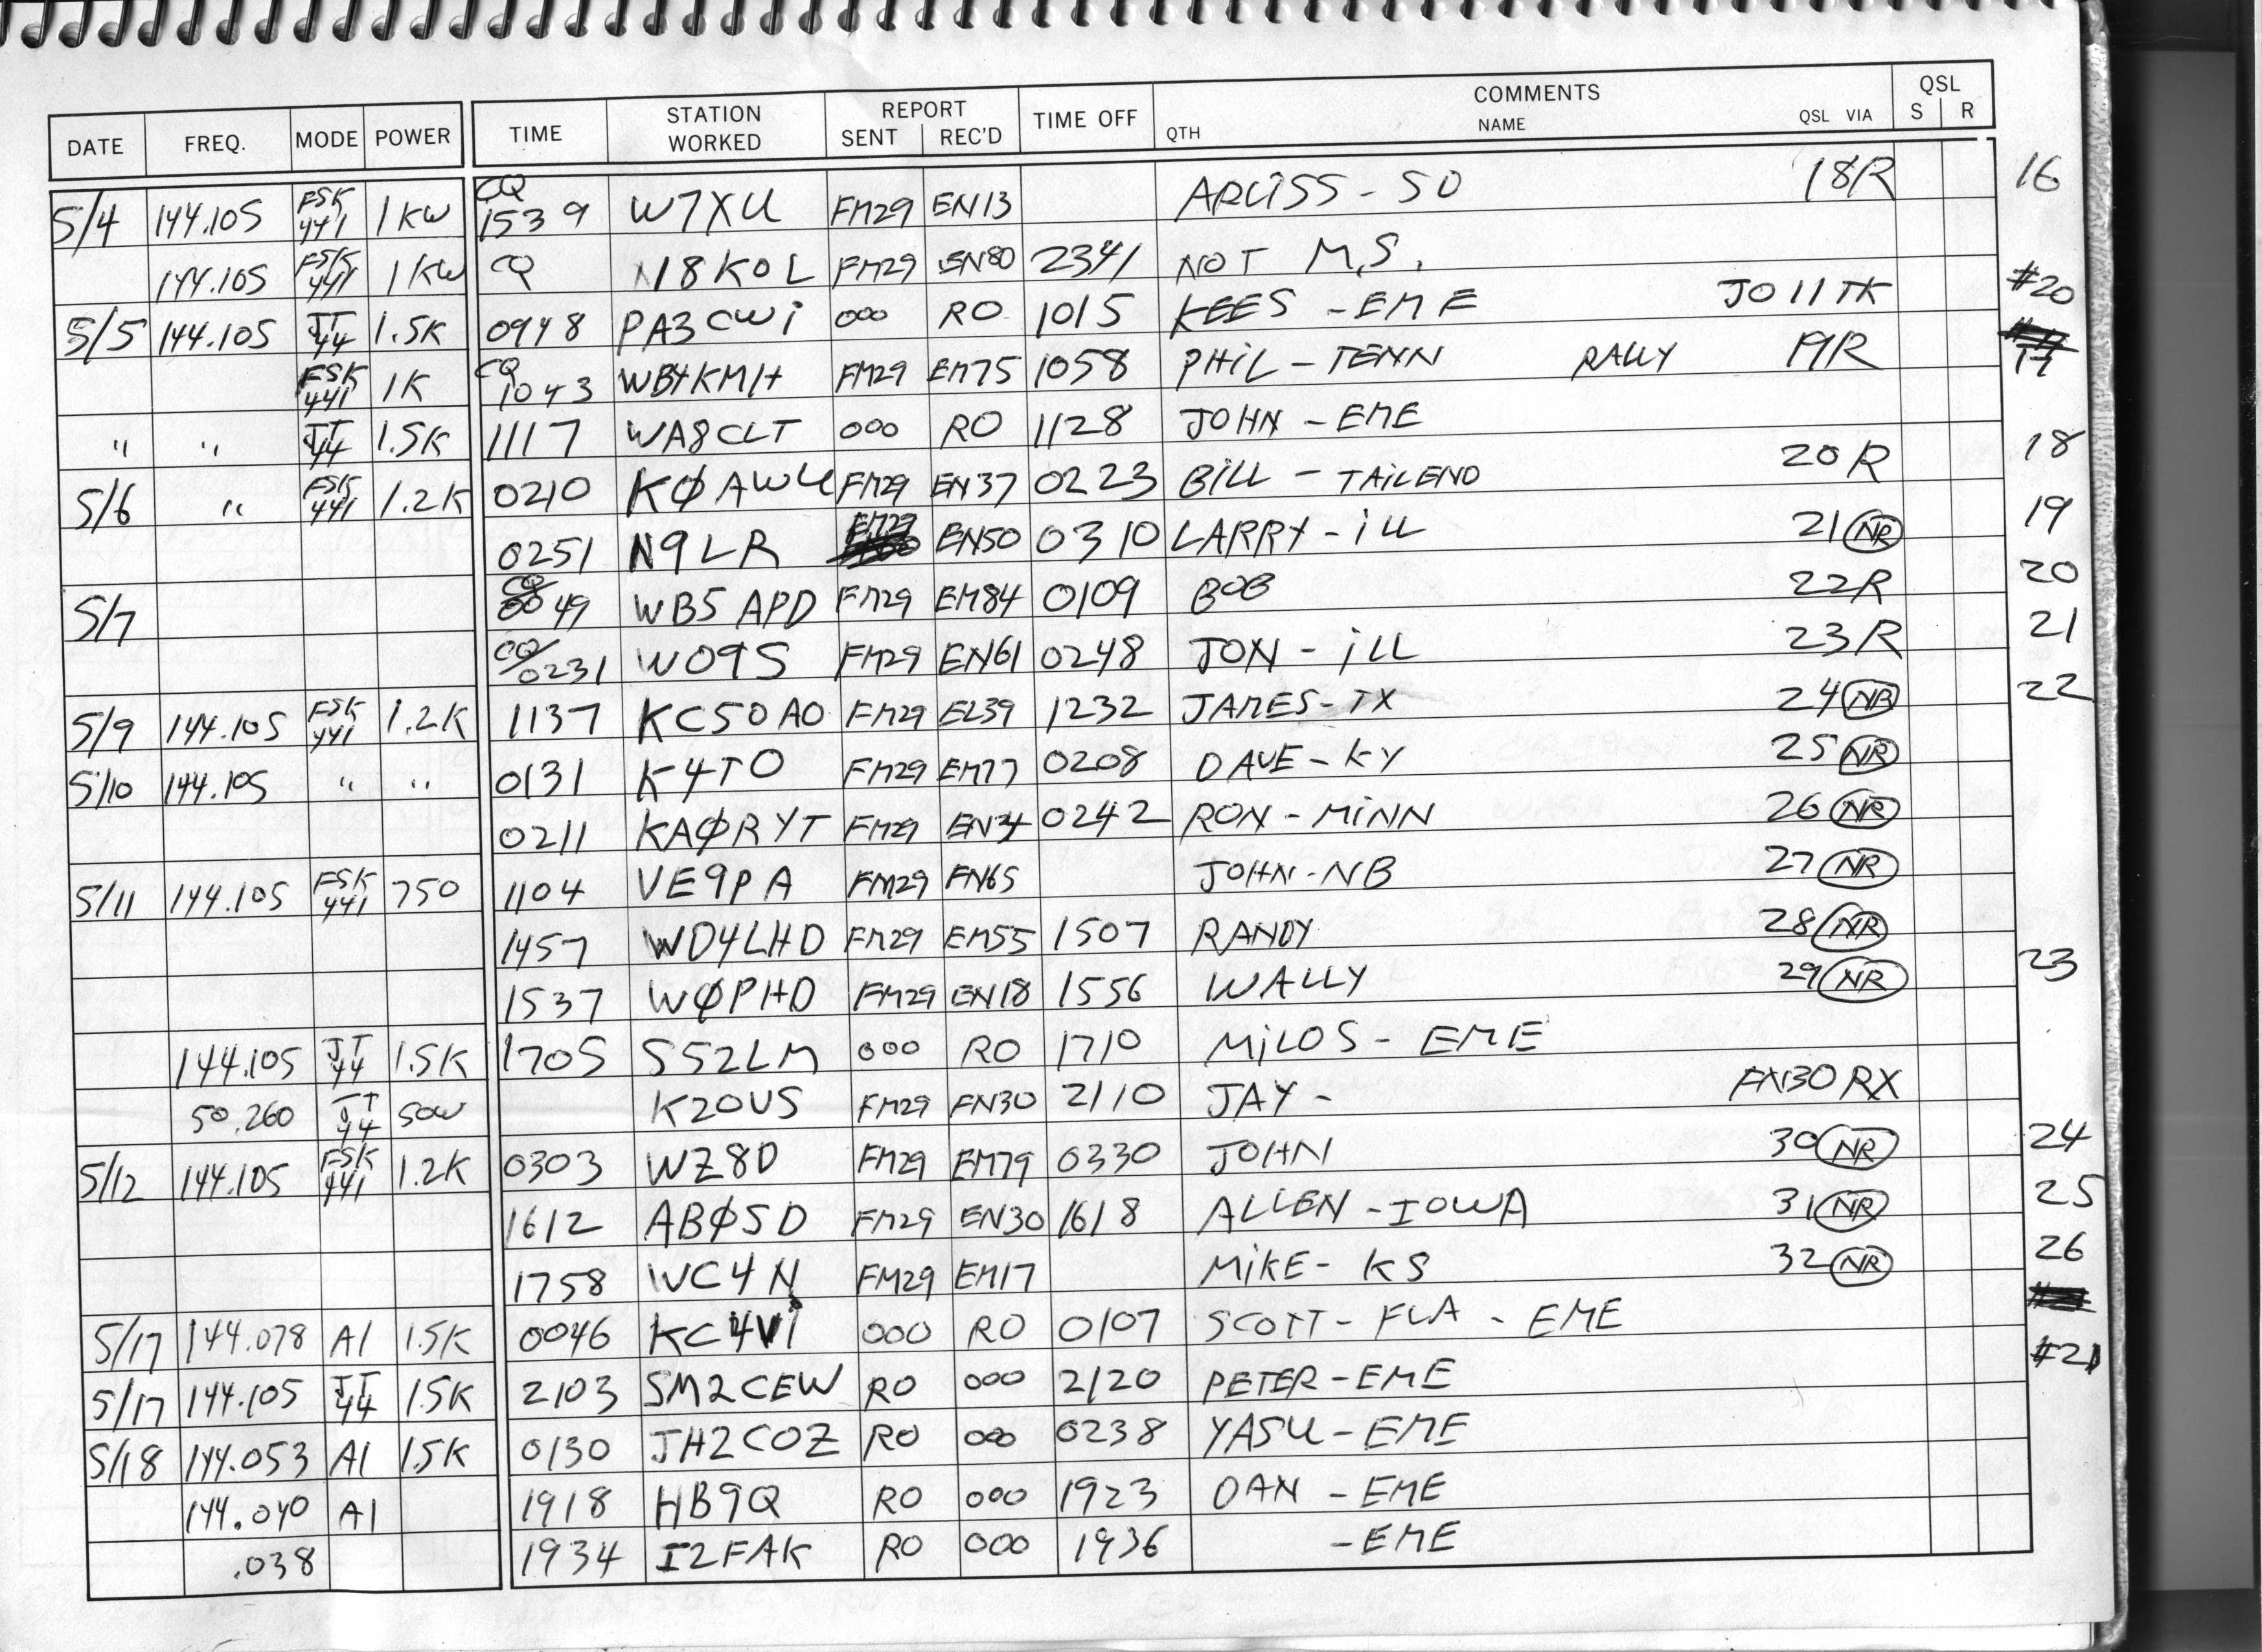 DATE FREQ. MODE POWER TIME STATION WORKED REPORT SENT REC'D TIME OFF COMMENTS QTH NAME QSL VIA QSL S R
5/4 144.105 FSK 441 1KW CQ 1539 W7XU FM29 EN13 ARLISS - SD 18R 16
144.105 FSK 441 1KW CQ N8KOL FM29 EN80 2341 NOT M.S.
5/5 144.105 JT 44 1.5K 0948 PA3CWi 000 RO 1015 KEES - EME JO11TK #20
FSK 441 1K CQ 1043 WB4KM/4 FM29 EM75 1058 PHiL - TENN RALLY 19R 17
" " JT 44 1.5K 1117 WA8CLT 000 RO 1128 JOHN - EME
5/6 " FSK 441 1.2K 0210 KØAWU FM29 EN37 0223 BiLL - TAiLEND 20R 18
0251 N9LR FM29 EN50 0310 LARRY - iLL 21 NR 19
5/7 CQ 0049 WB5APD FM29 EM84 0109 BOB 22R 20
CQ/0231 WO9S FM29 EN61 0248 JON - iLL 23R 21
5/9 144.105 FSK 441 1.2K 1137 KC5OAO FM29 EL39 1232 JAMES - TX 24 NR 22
5/10 144.105 " " 0131 K4TO FM29 EM77 0208 DAVE - KY 25 NR
0211 KAØRYT FM29 EN34 0242 RON - MiNN 26 NR
5/11 144.105 FSK 441 750 1104 VE9PA FM29 FN65 JOHN - NB 27 NR
1457 WD4LHD FM29 EM55 1507 RANDY 28 NR
1537 WØPHD FM29 EN18 1556 WALLY 29 NR 23
144.105 JT 44 1.5K 1705 S52LM 000 RO 1710 MiLOS - EME
50.260 JT 44 50W K2OVS FM29 FN30 2110 JAY - FN30RX
5/12 144.105 FSK 441 1.2K 0303 WZ8D FM29 EM79 0330 JOHN 30 NR 24
1612 ABØSD FM29 EN30 1618 ALLEN - IOWA 31 NR 25
1758 WC4N FM29 EM17 MiKE - KS 32 NR 26
5/17 144.078 A1 1.5K 0046 KC4Vi 000 RO 0107 SCOTT - FLA - EME
5/17 144.105 JT 44 1.5K 2103 SM2CEW RO 000 2120 PETER - EME #21
5/18 144.053 A1 1.5K 0130 JH2COZ RO 000 0238 YASU - EME
144.040 A1 1918 HB9Q RO 000 1923 DAN - EME
.038 1934 I2FAK RO 000 1936 - EME